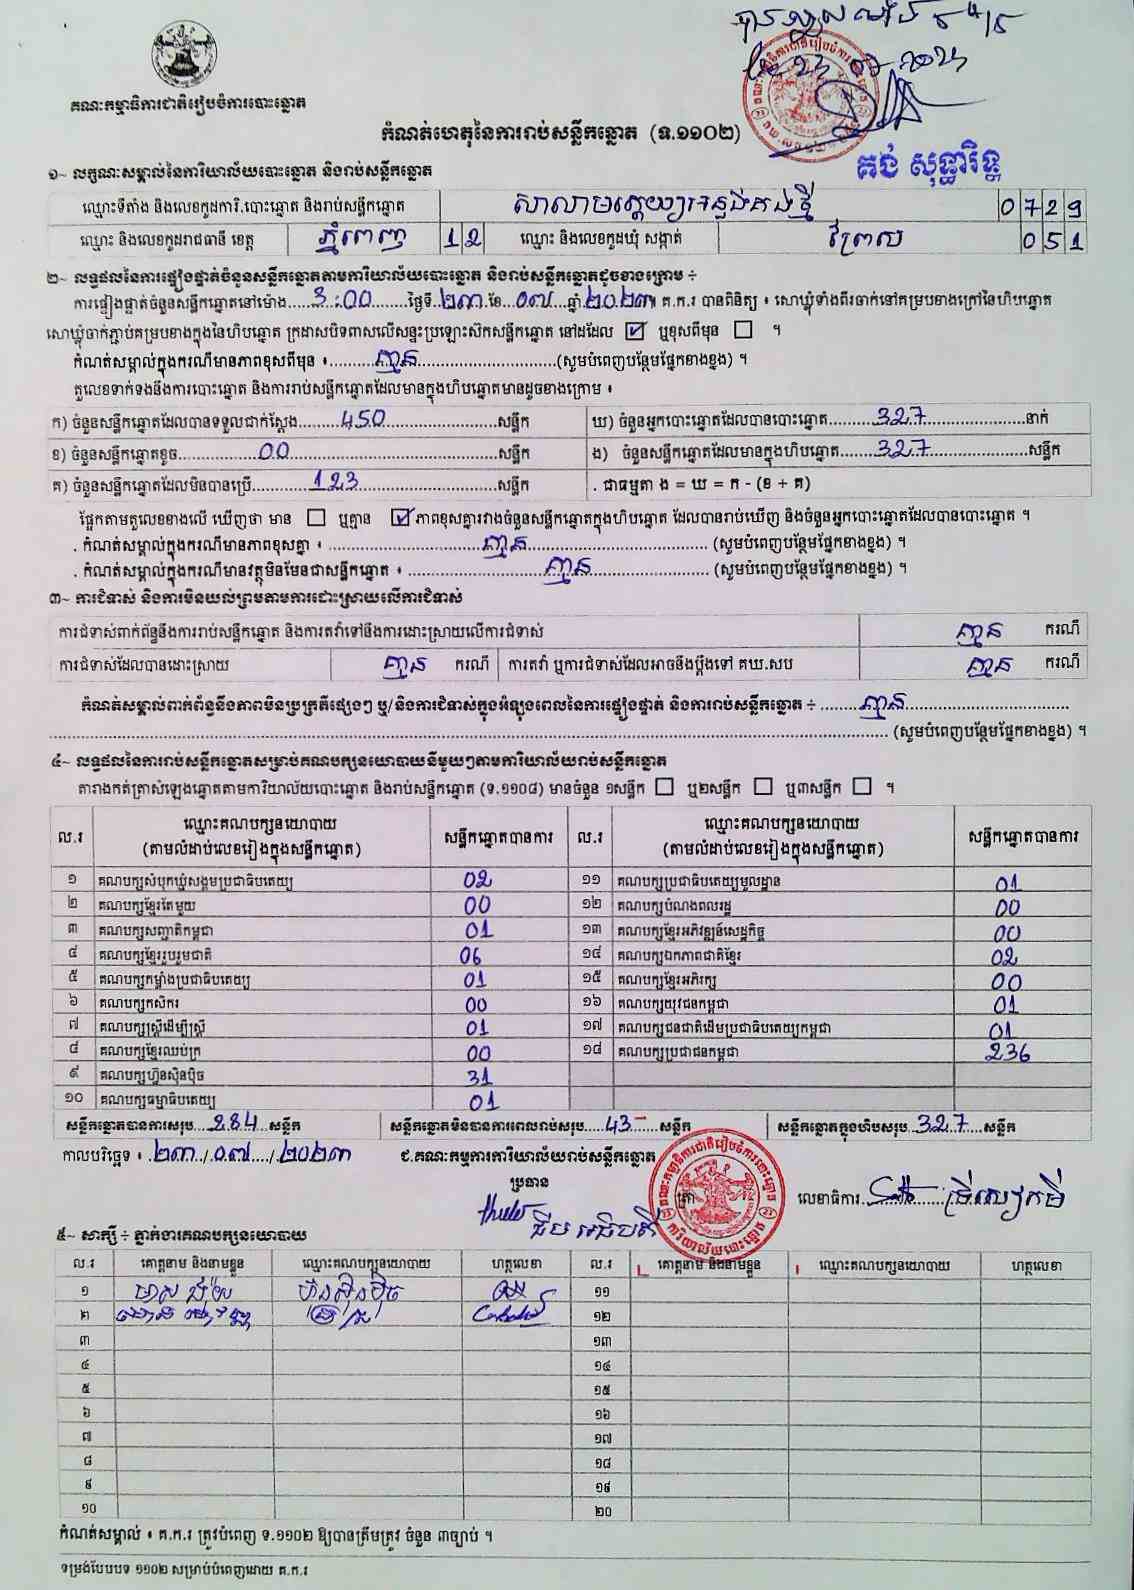 គណៈកម្មាធិការជាតិរៀបចំការបោះឆ្នោត
កំណត់ហេតុនៃការរាប់សន្លឹកឆ្នោត (ទ.១១០២)
គង់ សុទ្ធារិទ្ធ
១~ លក្ខណៈសម្គាល់នៃការិយាល័យបោះឆ្នោត និងរាប់សន្លឹកឆ្នោត
ឈ្មោះទីតាំង និងលេខកូដការិ.បោះឆ្នោត និងរាប់សន្លឹកឆ្នោត 0729
ឈ្មោះ និងលេខកូដរាជធានី ខេត្ត ភ្នំពេញ 12 ឈ្មោះ និងលេខកូដឃុំ សង្កាត់ 051
២~ លទ្ធផលនៃការផ្ទៀងផ្ទាត់ចំនួនសន្លឹកឆ្នោតតាមការិយាល័យបោះឆ្នោត និងរាប់សន្លឹកឆ្នោតដូចខាងក្រោម ÷
ការផ្ទៀងផ្ទាត់ចំនួនសន្លឹកឆ្នោតនៅម៉ោង 3:00 ថ្ងៃទី ២៣ ខែ ០៧ ឆ្នាំ ២០២៣ គ.ក.រ បានពិនិត្យ ៖ សោឃ្លុំទាំងពីរចាក់នៅគម្របខាងក្រៅនៃហិបឆ្នោត
សោឃ្លុំចាក់ភ្ជាប់គម្របខាងក្នុងនៃហិបឆ្នោត ក្រដាសបិទពាសលើសន្ទះប្រឡោះសិកសន្លឹកឆ្នោត នៅដដែល ☑ ឬខុសពីមុន ☐ ។
កំណត់សម្គាល់ក្នុងករណីមានភាពខុសពីមុន ៖ គ្មាន (សូមបំពេញបន្ថែមផ្នែកខាងខ្នង) ។
តួលេខទាក់ទងនឹងការបោះឆ្នោត និងការរាប់សន្លឹកឆ្នោតដែលមានក្នុងហិបឆ្នោតមានដូចខាងក្រោម ៖
ក) ចំនួនសន្លឹកឆ្នោតដែលបានទទួលជាក់ស្តែង 450 សន្លឹក ឃ) ចំនួនអ្នកបោះឆ្នោតដែលបានបោះឆ្នោត 327 នាក់
ខ) ចំនួនសន្លឹកឆ្នោតខូច 00 សន្លឹក ង) ចំនួនសន្លឹកឆ្នោតដែលមានក្នុងហិបឆ្នោត 327 សន្លឹក
គ) ចំនួនសន្លឹកឆ្នោតដែលមិនបានប្រើ 123 សន្លឹក . ជាធម្មតា ង = ឃ = ក - (ខ + គ)
ផ្អែកតាមតួលេខខាងលើ ឃើញថា មាន ☐ ឬគ្មាន ☑ ភាពខុសគ្នារវាងចំនួនសន្លឹកឆ្នោតក្នុងហិបឆ្នោត ដែលបានរាប់ឃើញ និងចំនួនអ្នកបោះឆ្នោតដែលបានបោះឆ្នោត ។
. កំណត់សម្គាល់ក្នុងករណីមានភាពខុសគ្នា ៖ គ្មាន (សូមបំពេញបន្ថែមផ្នែកខាងខ្នង) ។
. កំណត់សម្គាល់ក្នុងករណីមានវត្ថុមិនមែនជាសន្លឹកឆ្នោត ៖ គ្មាន (សូមបំពេញបន្ថែមផ្នែកខាងខ្នង) ។
៣~ ការជំទាស់ និងការមិនយល់ព្រមតាមការដោះស្រាយលើការជំទាស់
ការជំទាស់ពាក់ព័ន្ធនឹងការរាប់សន្លឹកឆ្នោត និងការតវ៉ាទៅនឹងការដោះស្រាយលើការជំទាស់ គ្មាន ករណី
ការជំទាស់ដែលបានដោះស្រាយ គ្មាន ករណី ការតវ៉ា ឬការជំទាស់ដែលអាចនឹងប្តឹងទៅ គឃ.សប គ្មាន ករណី
កំណត់សម្គាល់ពាក់ព័ន្ធនឹងភាពមិនប្រក្រតីផ្សេងៗ ឬ/និងការជំទាស់ក្នុងអំឡុងពេលនៃការផ្ទៀងផ្ទាត់ និងការរាប់សន្លឹកឆ្នោត ÷ គ្មាន
(សូមបំពេញបន្ថែមផ្នែកខាងខ្នង) ។
៤~ លទ្ធផលនៃការរាប់សន្លឹកឆ្នោតសម្រាប់គណបក្សនយោបាយនីមួយៗតាមការិយាល័យរាប់សន្លឹកឆ្នោត
តារាងកត់ត្រាសំឡេងឆ្នោតតាមការិយាល័យបោះឆ្នោត និងរាប់សន្លឹកឆ្នោត (ទ.១១០៨) មានចំនួន ១សន្លឹក ☐ ឬ២សន្លឹក ☐ ឬ៣សន្លឹក ☐ ។
ល.រ ឈ្មោះគណបក្សនយោបាយ (តាមលំដាប់លេខរៀងក្នុងសន្លឹកឆ្នោត) សន្លឹកឆ្នោតបានការ ល.រ ឈ្មោះគណបក្សនយោបាយ (តាមលំដាប់លេខរៀងក្នុងសន្លឹកឆ្នោត) សន្លឹកឆ្នោតបានការ
១ គណបក្សសំបុកឃ្មុំសង្គមប្រជាធិបតេយ្យ 02 ១១ គណបក្សប្រជាធិបតេយ្យមូលដ្ឋាន 01
២ គណបក្សខ្មែរតែមួយ 00 ១២ គណបក្សបំណងពលរដ្ឋ 00
៣ គណបក្សសញ្ជាតិកម្ពុជា 01 ១៣ គណបក្សខ្មែរអភិវឌ្ឍន៍សេដ្ឋកិច្ច 00
៤ គណបក្សខ្មែររួបរួមជាតិ 06 ១៤ គណបក្សឯកភាពជាតិខ្មែរ 02
៥ គណបក្សកម្លាំងប្រជាធិបតេយ្យ 01 ១៥ គណបក្សខ្មែរអភិរក្ស 00
៦ គណបក្សកសិករ 00 ១៦ គណបក្សយុវជនកម្ពុជា 01
៧ គណបក្សស្ត្រីដើម្បីស្ត្រី 01 ១៧ គណបក្សជនជាតិដើមប្រជាធិបតេយ្យកម្ពុជា 01
៨ គណបក្សខ្មែរឈប់ក្រ 00 ១៨ គណបក្សប្រជាជនកម្ពុជា 236
៩ គណបក្សហ៊្វុនស៊ិនប៉ិច 31
១០ គណបក្សធម្មាធិបតេយ្យ 01
សន្លឹកឆ្នោតបានការសរុប 284 សន្លឹក សន្លឹកឆ្នោតមិនបានការពេលរាប់សរុប 43 សន្លឹក សន្លឹកឆ្នោតក្នុងហិបសរុប 327 សន្លឹក
កាលបរិច្ឆេទ ៖ ២៣/០៧/២០២៣ ជ.គណៈកម្មការការិយាល័យរាប់សន្លឹកឆ្នោត
ប្រធាន ត្រា លេខាធិការ
៥~ សាក្សី ÷ ភ្នាក់ងារគណបក្សនយោបាយ
ល.រ គោត្តនាម និងនាមខ្លួន ឈ្មោះគណបក្សនយោបាយ ហត្ថលេខា ល.រ គោត្តនាម និងនាមខ្លួន ឈ្មោះគណបក្សនយោបាយ ហត្ថលេខា
១ ហ៊្វុនស៊ិនប៉ិច ១១
២ ១២
៣ ១៣
៤ ១៤
៥ ១៥
៦ ១៦
៧ ១៧
៨ ១៨
៩ ១៩
១០ ២០
កំណត់សម្គាល់ ៖ គ.ក.រ ត្រូវបំពេញ ទ.១១០២ ឱ្យបានត្រឹមត្រូវ ចំនួន ៣ច្បាប់ ។
ទម្រង់បែបបទ ១១០២ សម្រាប់បំពេញដោយ គ.ក.រ